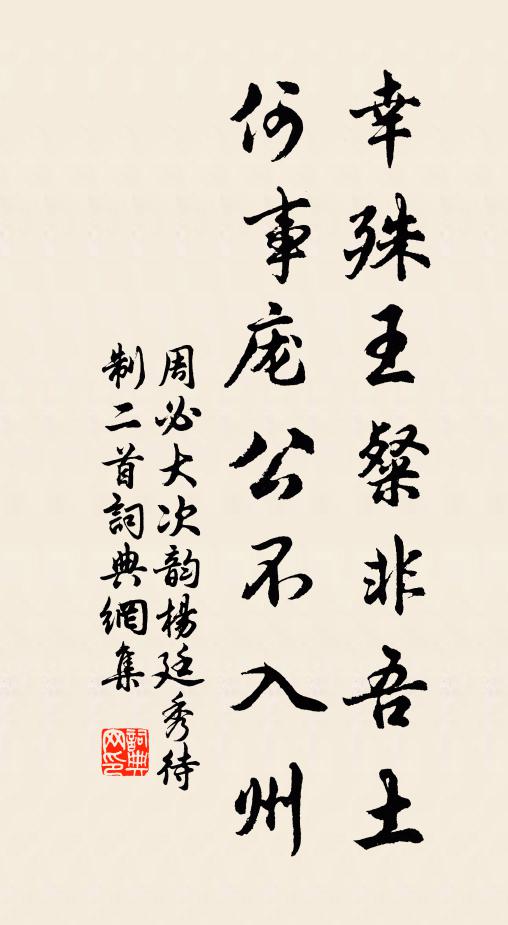 幸殊王粲非吾土
何事庞公不入州
周必大次韵楊廷秀待
制二首詞典網集
詞典
网印